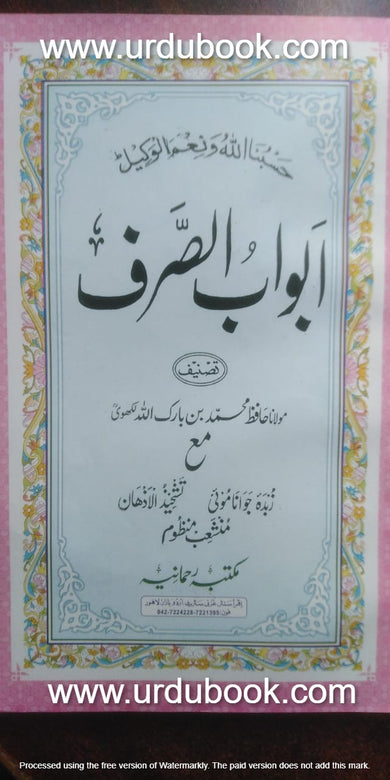 www.urdubook.com
حسبنا الله ونعم الوكيل
ابواب الصَّرف
تصنیف
مولانا حافظ محمد بن بارک اللہ لکھویؒ
مع
زبدہ جوانا موئی تشحیذ الاذھان
منشعب منظوم
مکتبہ رحمانیہ
اقرأ سنٹر غزنی سٹریٹ اردو بازار لاہور
فون: 042-7224228-7221395
www.urdubook.com
Processed using the free version of Watermarkly. The paid version does not add this mark.